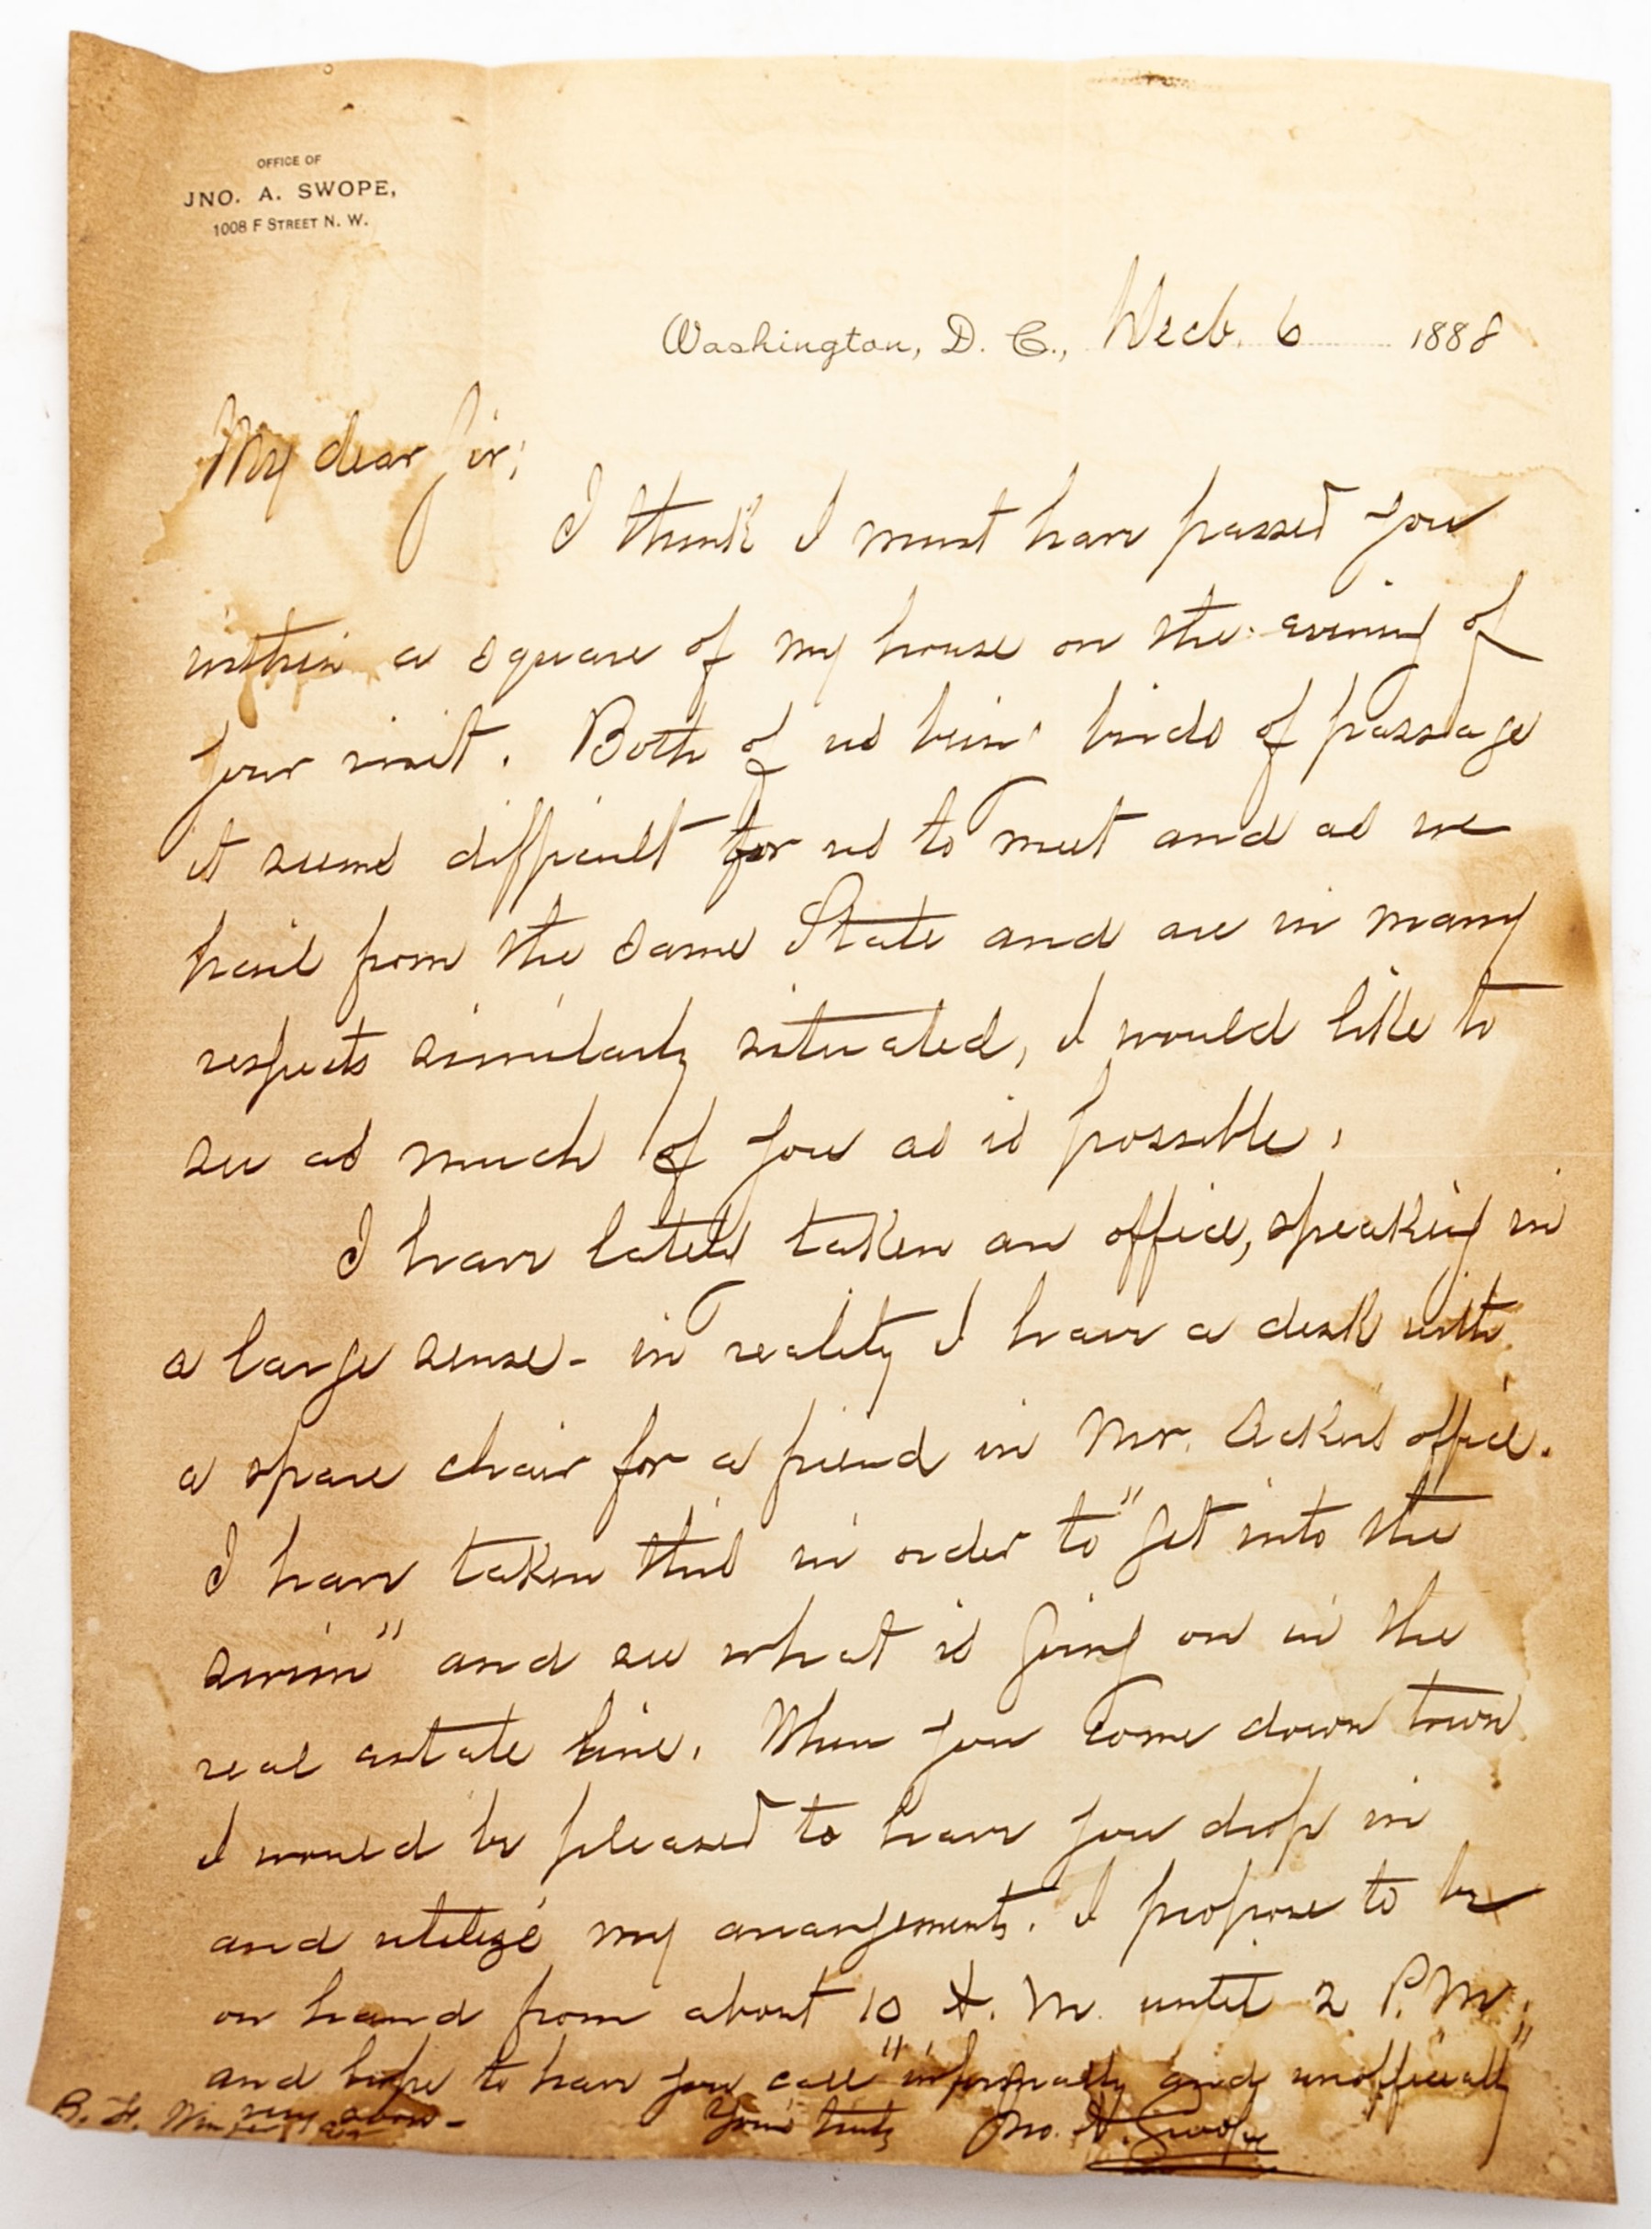 OFFICE OF
JNO. A. SWOPE,
1008 F STREET N. W.
Washington, D. C., Decb. 6 1888
My dear Sir;
I think I must have passed you
within a square of my house on the evening of
your visit. Both of us being birds of passage
it seems difficult for us to meet and as we
hail from the same State and are in many
respects similarly situated, I would like to
see as much of you as is possible.
I have lately taken an office, speaking in
a large sense - in reality I have a desk with
a spare chair for a friend in Mr. Acker's office.
I have taken this in order to "get into the
swim" and see what is going on in the
real estate line. When you come down town
I would be pleased to have you drop in
and utilize my arrangements. I propose to be
on hand from about 10 A. M. until 2 P. M.
and hope to have you call "informally and unofficially"
very soon -
Yours truly Jno. A. Swope
B. F.